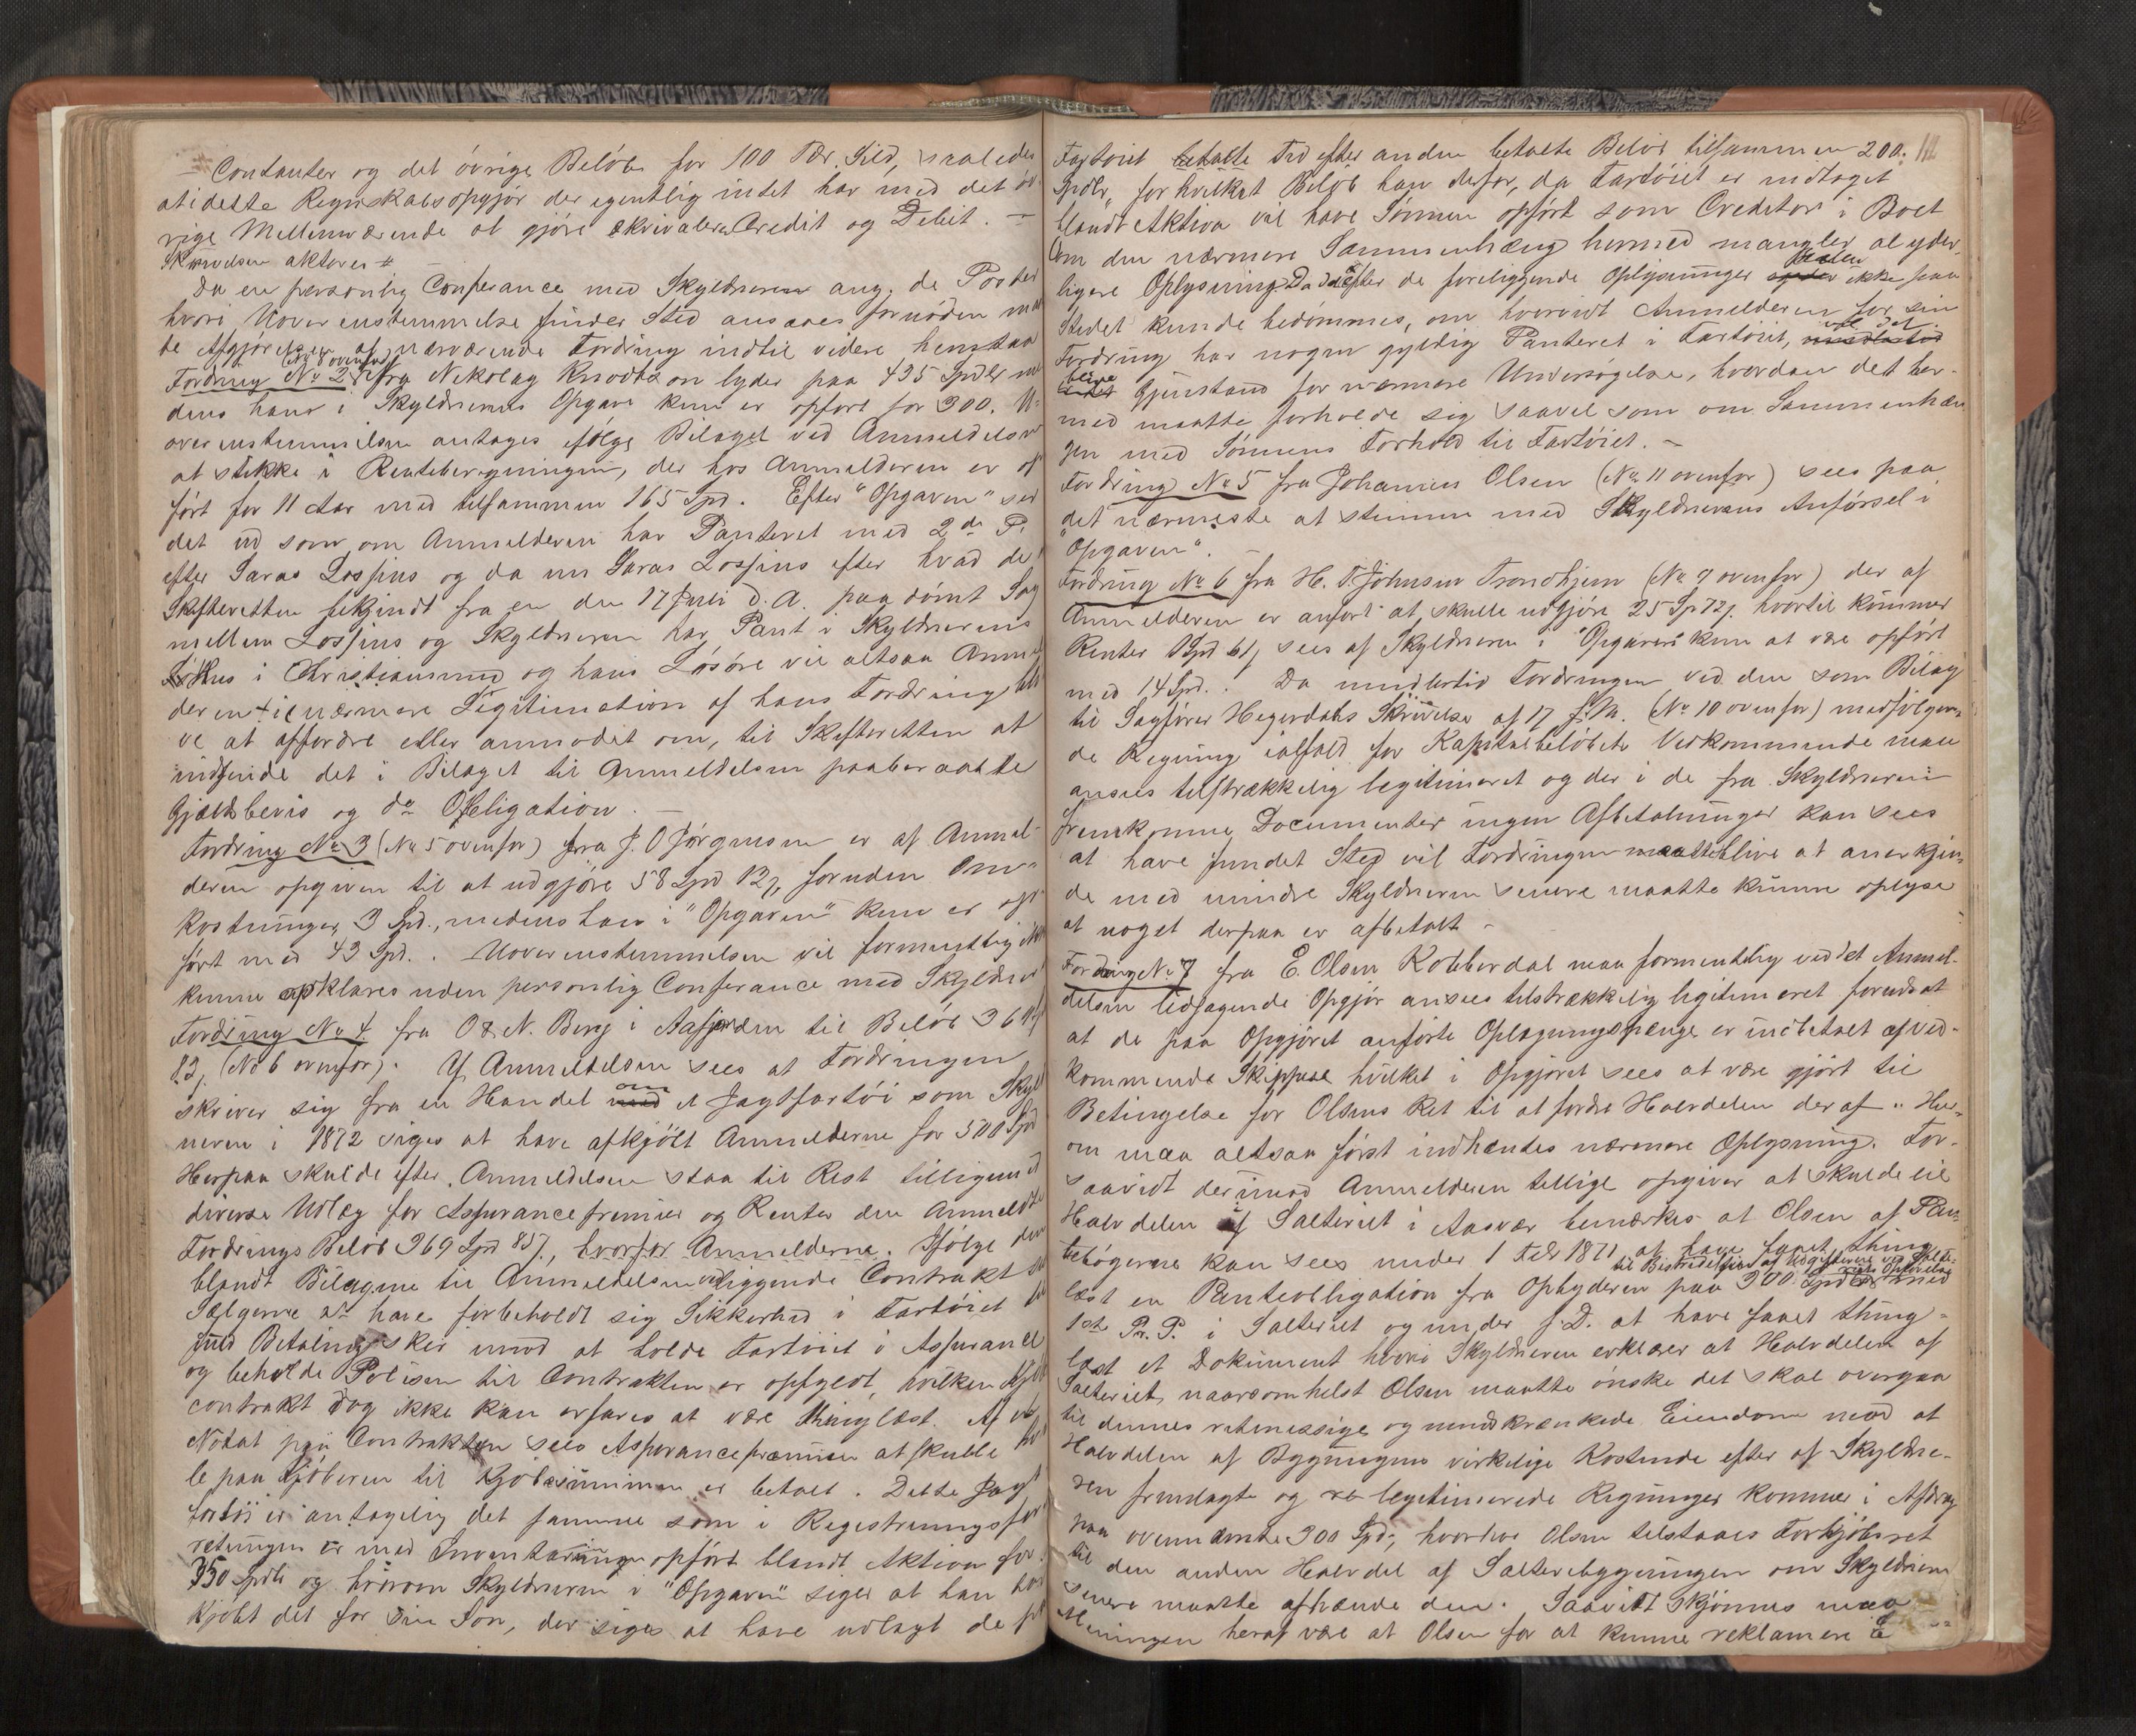 Contanter og det övrige Belöb for 100 Tdr. Sild, saaledes
at i dette Regnskabsopgjör der egentlig intet har med det öv
rige Mellemværende at gjöre ækvivalere Credit og Debit. –
Da en personlig Conferance med Skyldneren ang. de Poster
hvori Uoverenstemmelse finder Sted ansees fornöden maa
de Afgjörelsen af nærværende Fordring indtil videre henstaa
Fordring No 2 (No ovenfor) fra Nikolay Knodtzon lyder paa 495 Spdlr me
dens hans i Skyldnerens Opgave kun er opført for 300. U-
overenstemmelsen antages ifölge Bilaget ved Anmeldelsen
at stikke i Renteberegningen, der hos Anmelderen er op
fört for 11 Aar med tilsammen 165 Spd. Efter "Opgaven" ser
det ud som om Anmelderen har Panteret med 2de Pr.
efter Saras Lossius og da nu Saras Lossius efter hvad de
Skifteretten bekjendt fra en den 17 Juli d. A. paadömt Sag
mellem Lossius og Skyldneren har Pant i Skyldnerens
Hus i Christiansund og hans Lösöre vil altsaa Anmel
deren til nærmere Legitimation af hans Fordring bli
ve at affordre eller anmodet om, til Skifteretten at
indsende det i Bilaget til Anmeldelsen paaberaabte
Gjældsbevis og do Obligation. –
Fordring No 3 (No 5 ovenfor) fra J. O Jörgensen er af Anmel-
deren opgiven til at udgjöre 58 Spd 12 ß, foruden Om-
kostninger 3 Spd., medens han i "Opgaven" kun er op
fört med 43 Spd. . Uoverenstemmelsen vil formentlig ikke
kunne opklares uden personlig Conferance med Skyldner
Fordring No 4 fra O & N. Berg i Aafjorden til Belöb 36
83, (No 6 ovenfor). Af Anmeldelsen sees at Fordringen
skriver sig fra en Handel om et Jagtfartöi som Skyld
neren i 1872 siges at have afkjöbt Anmelderne for 500 Spd
Herpaa skulde efter Anmeldelsen staa til Rest tilligemed
diverse Udlæg for Assurancepremier og Renter den Anmeldte
Fordrings Belöb 369 Spd 83 ß, hvorfor Anmelderne. Ifölge den
blandt Bilagene til Anmeldelsen vedliggende Contrakt
Sælgerne at have forbeholdt sig Sikkerhed i Fartöiet
fuld Betaling sker imod at holde Fartöiet i Assurance
og beholde Polisen til Contrakten er opfyldt, hvilken
contrakt dog ikke kan erfares at være thinglæst. Af
Notat paa Contrakten sees Assurancepræmien at skulle
le paa Kjöberen til Kjöbesummen er betalt. Dette Jagt
fartöi er antagelig det samme som i Registreringsfor
retningen er med Inventarium opfört blandt Aktiva for
350 Spdlr og hvorom Skyldneren i "Opgaven" siger at han har
kjöbt det for sin Sön, der siges at have udlagt de
Fartöiet Tid efter anden betalte Belöb tilsammen 200.
Spdlr, for hvilket Belöb han derfor, da Fartöiet er indtaget
blandt Aktiva vil have Sönnen opfört som Creditor i Boet
Om den nærmere Sammenhæng hermed mangler al yder-
ligere Oplysning. Da det efter de foreliggende Oplysninger ikke paa
Stedet kunde bedömmes, om hvorvidt Anmelderen for sin
Fordring har nogen gyldig Panteret i Fartöiet, vil det
blive Gjenstand for nærmere Undersögelse, hvordan det her-
med maatte forholde sig saavel som om Sammenhæn
gen med Sönnens Forhold til Fartöiet. –
Fordring No 5 fra Johannes Olsen (No 11 ovenfor) sees paa
det nærmeste at stemme med Skyldnerens Anförsel i
"Opgaven". –
Fordring No 6 fra H. T. Johnsen Trondhjem (No 9 ovenfor) der af
Anmelderen er anfört at skulle udgjöre 25 Sp 72 ß. hvortil kommer
Renter 1 Spd 61 ß sees af Skyldneren i "Opgaven" kun at være opfört
med 14 Spd. . Da imidlertid Fordringen ved den som Bilag
til Sagförer Hegerdahls Skrivelse af 17 f. M. (No 10 ovenfor) medfölgen-
de Regning ialfald for Kapitalbelöbets Vedkommende maa
ansees tilstrækkelig legitimeret og der i de fra Skyldneren
fremkomne Documenter ingen Afbetalninger kan sees
at have fundet Sted vil Fordringen maatte blive at anerkjen-
de med mindre Skyldneren senere maatte kunne oplyse
at noget derpaa er afbetalt –
Fordring No 7 fra E. Olsen Kobberdal maa formentlig ved det Anmel-
delsen ledsagende Opgjör ansees tilstrækkelig legitimeret forudsat
at de paa Opgjöret anförte Oplagningspenge er indbetalt af ved-
kommende Skippere hvilket i Opgjöret sees at være gjört til
Betingelse for Olsens Ret til at fordre Halvdelen deraf. Her-
om maa altsaa först indhentes nærmere Oplysning. For-
saavidt derimod Anmelderen tillige opgiver at skulde eie
Halvdelen af Salteriet i Aasvær bemærkes at Olsen af Pan-
tebögerne kan sees under 1 Febr 1871 at have faaet thing-
til Bestridelsen af Udgifterne ved Salte-
riets Opförelse
læst en Panteobligation fra Ophyderen paa 300 Spd med
1ste Pr. P. i Salteriet og under s. D. at have faaet thing-
læst et Dokument hvori Skyldneren erklærer at Halvdelen af
Salteriet, naarsomhelst Olsen maatte önske det skal overgaa
til dennes retmæssige og uindskrænkede Eiendom mod at
Halvdelen af Bygningens virkelige Kostende efter af Skyldne-
ren fremlagte og legitimerede Regninger kommer i Afdrag
paa ovennævnte 300 Spd, hvorhos Olsen tilstaaes Forkjöbsret
til den anden Halvdel af Salteribygningen om Skyldneren
senere maatte afhænde den. Saavidt skjönnes maa
Meningen heraf være at Olsen for at kunne reklamere E